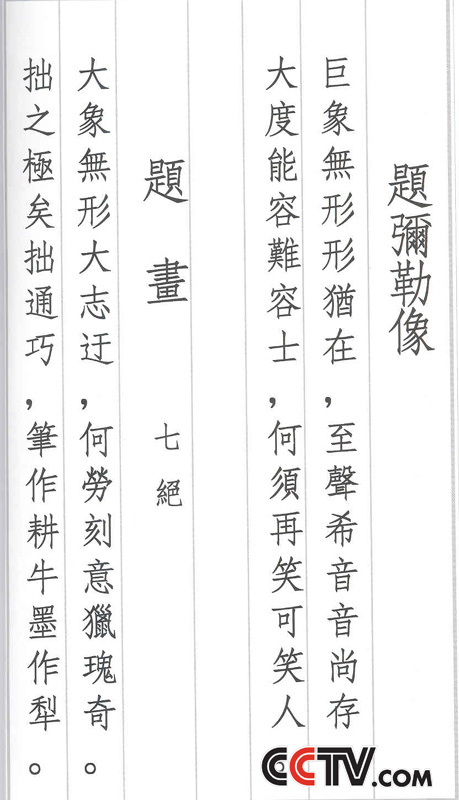 題彌勒像
巨象無形形猶在，至聲希音音尚存
大度能容難容士，何須再笑可笑人
題畫 七絕
大象無形大志迂，何勞刻意獵瑰奇。
拙之極矣拙通巧，筆作耕牛墨作犁。
CCTV.COM